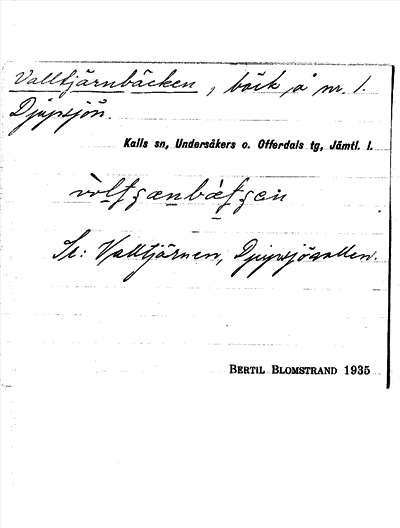 Valltjärnbäcken, bäck å nr. 1.
Djupsjön.
Kalls sn, Undersåkers o. Offerdals tg, Jämtl. l.
Se: Valltjärnen, Djupsjövallen.
BERTIL BLOMSTRAND 1935